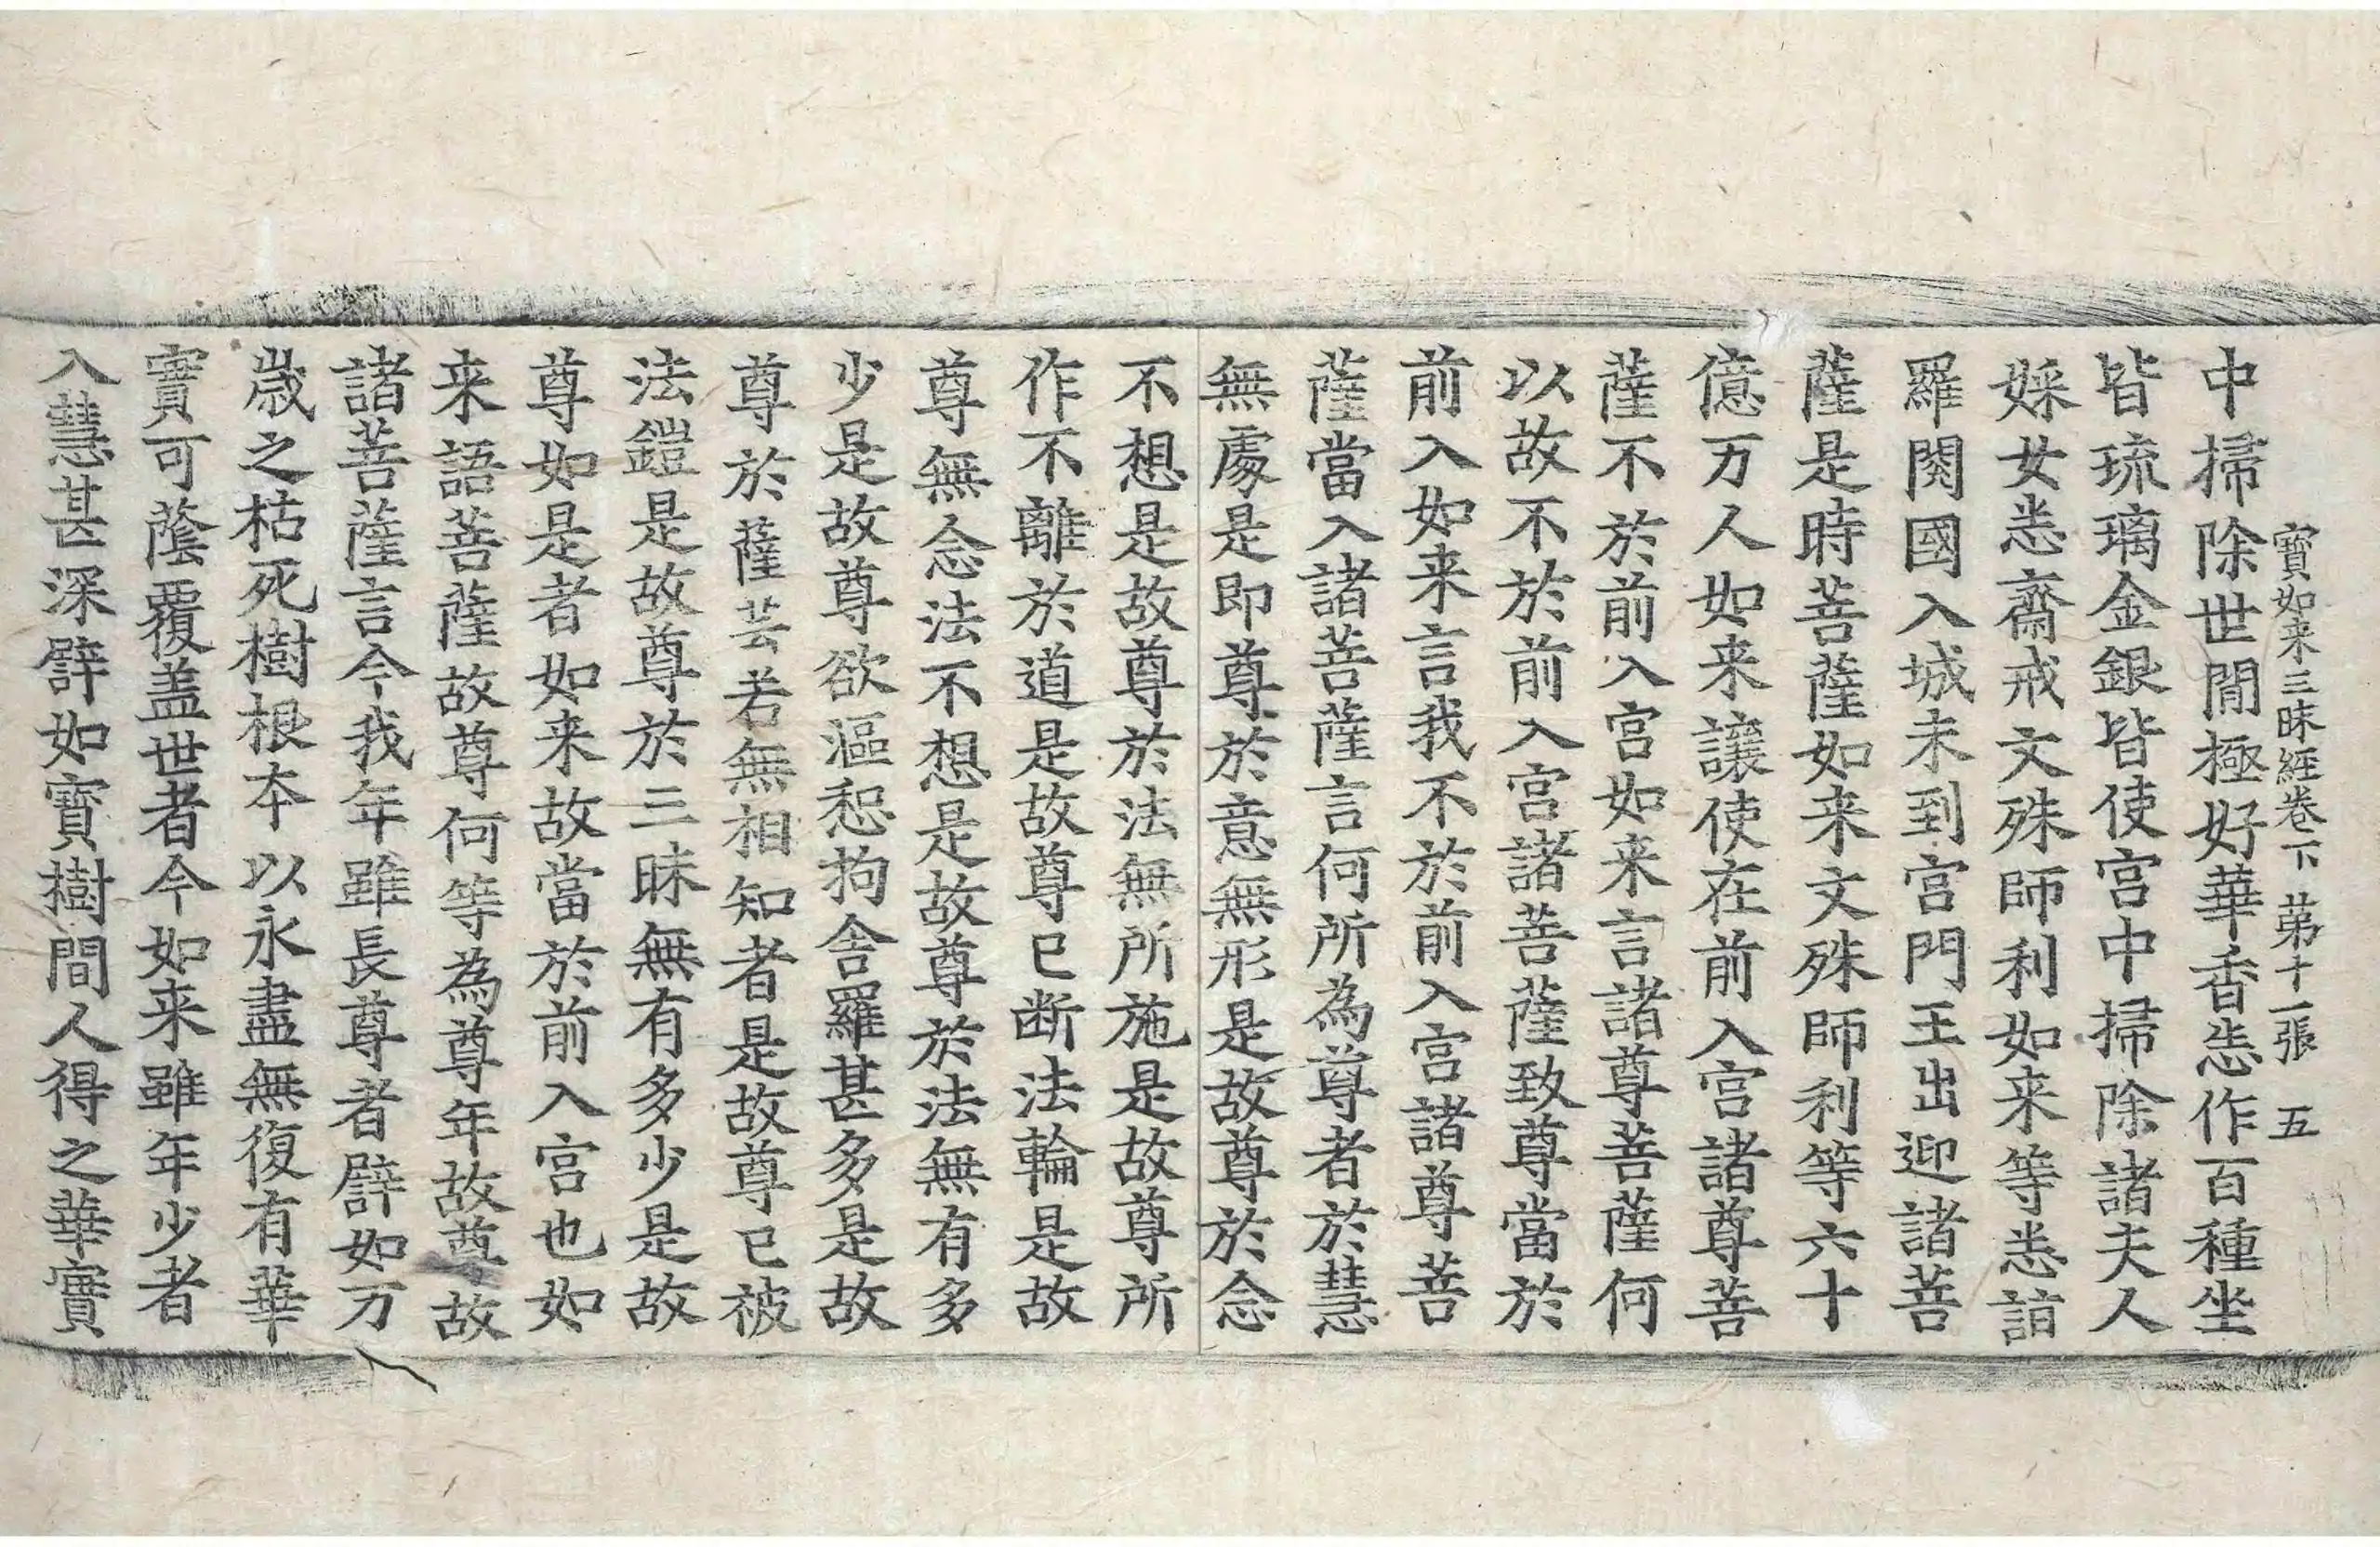 寶如来三昧経卷下 苐十一張 五
中掃除世閒極好華香恙作百種坐
皆琉璃金銀皆使宮中掃除諸夫人
婇女悉齋戒文殊師利如来等悉詣
羅閱國入城未到宮門王出迎諸菩
薩是時菩薩如来文殊師利等六十
億万人如来讓使在前入宮諸尊菩
薩不於前入宮如来言諸尊菩薩何
以故不於前入宮諸菩薩致尊當於
前入如来言我不於前入宮諸尊菩
薩當入諸菩薩言何所為尊者於慧
無處是即尊於意無形是故尊於念
不想是故尊於法無所施是故尊所
作不離於道是故尊已断法輪是故
尊無念法不想是故尊於法無有多
少是故尊欲漚惒拘舍羅甚多是故
尊於薩芸若無相知者是故尊已被
法鎧是故尊於三昧無有多少是故
尊如是者如来故當於前入宮也如
来語菩薩故尊何等為尊年故尊故
諸菩薩言今我年雖長尊者譬如万
歲之枯死樹根本以永盡無復有華
實可蔭覆盖世者今如来雖年少者
入慧甚深譬如寶樹間人得之華實